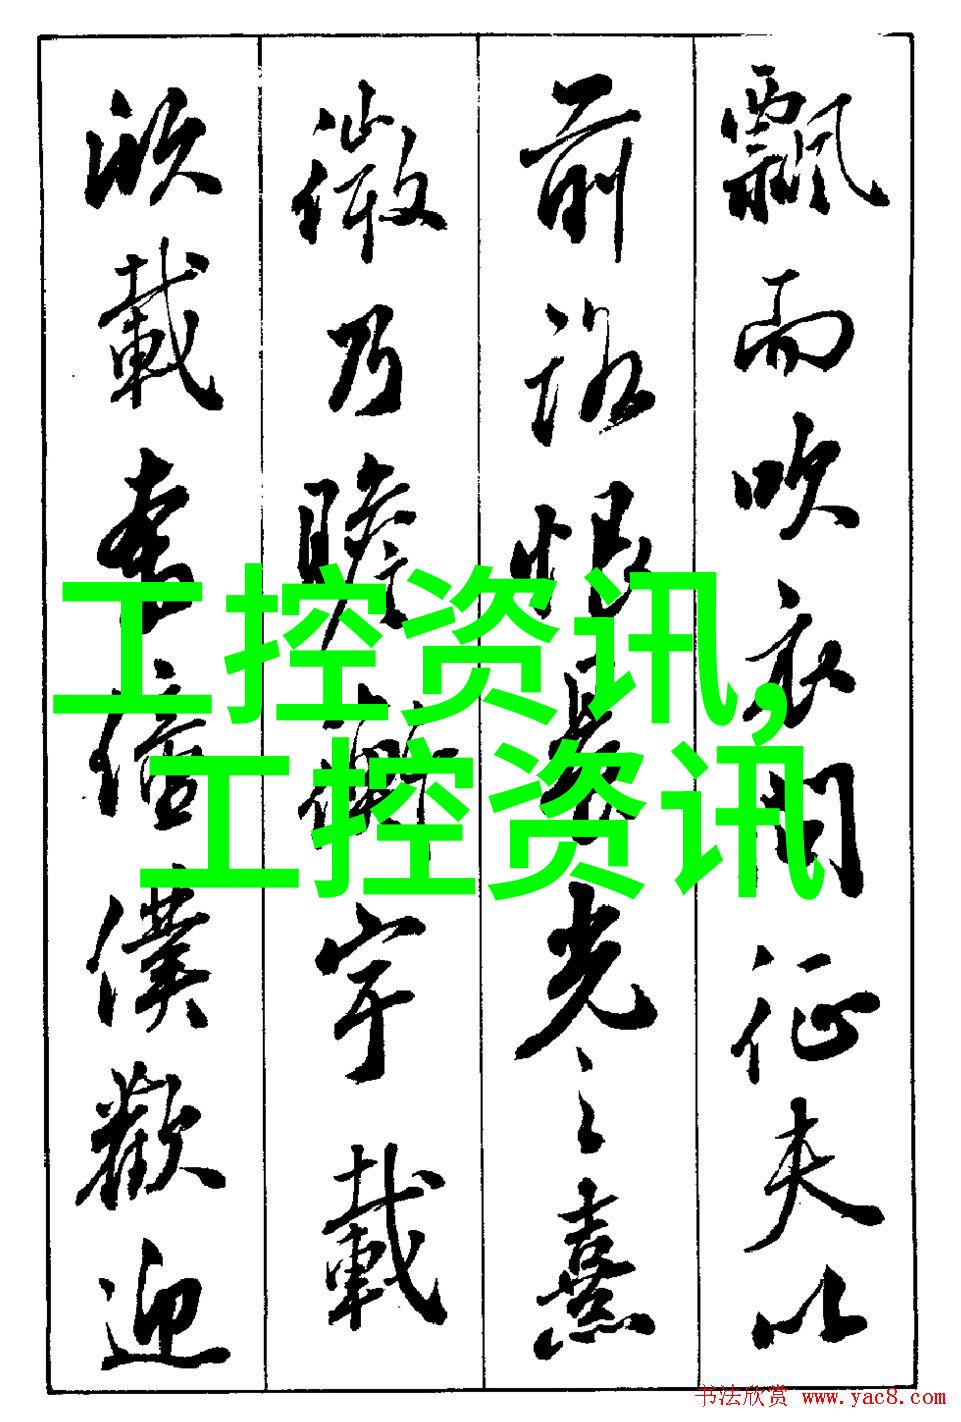 飄而吹衣問征夫以
前路恨晨光之熹
微乃瞻衡宇載
欣載奔僮僕歡迎
工控资讯,
工控资讯
书法欣赏 www.yac8.com